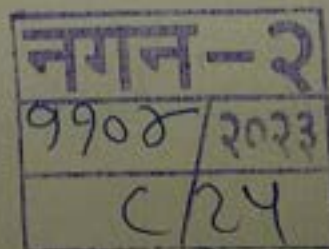 नगन-२
११०४/२०२३
८/२५